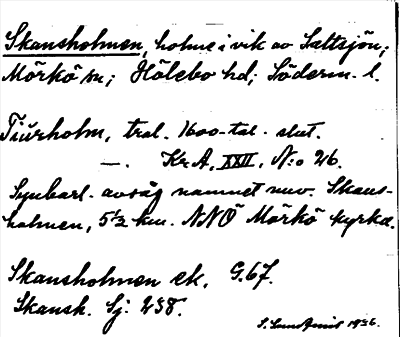 Skansholmen, holme i vik av Saltsjön;
Mörkö sn; Hölebo hd; Söderm. l.
Tiurholm, tral. 1600-tal. slut.
—. Kr.A. XXII, N:o 26.
Synbarl. avsåg namnet nuv. Skans-
holmen, 5½ km. NNÖ Mörkö kyrka.
Skansholmen ek. G.67.
Skansk. Sj: 238.
1936.